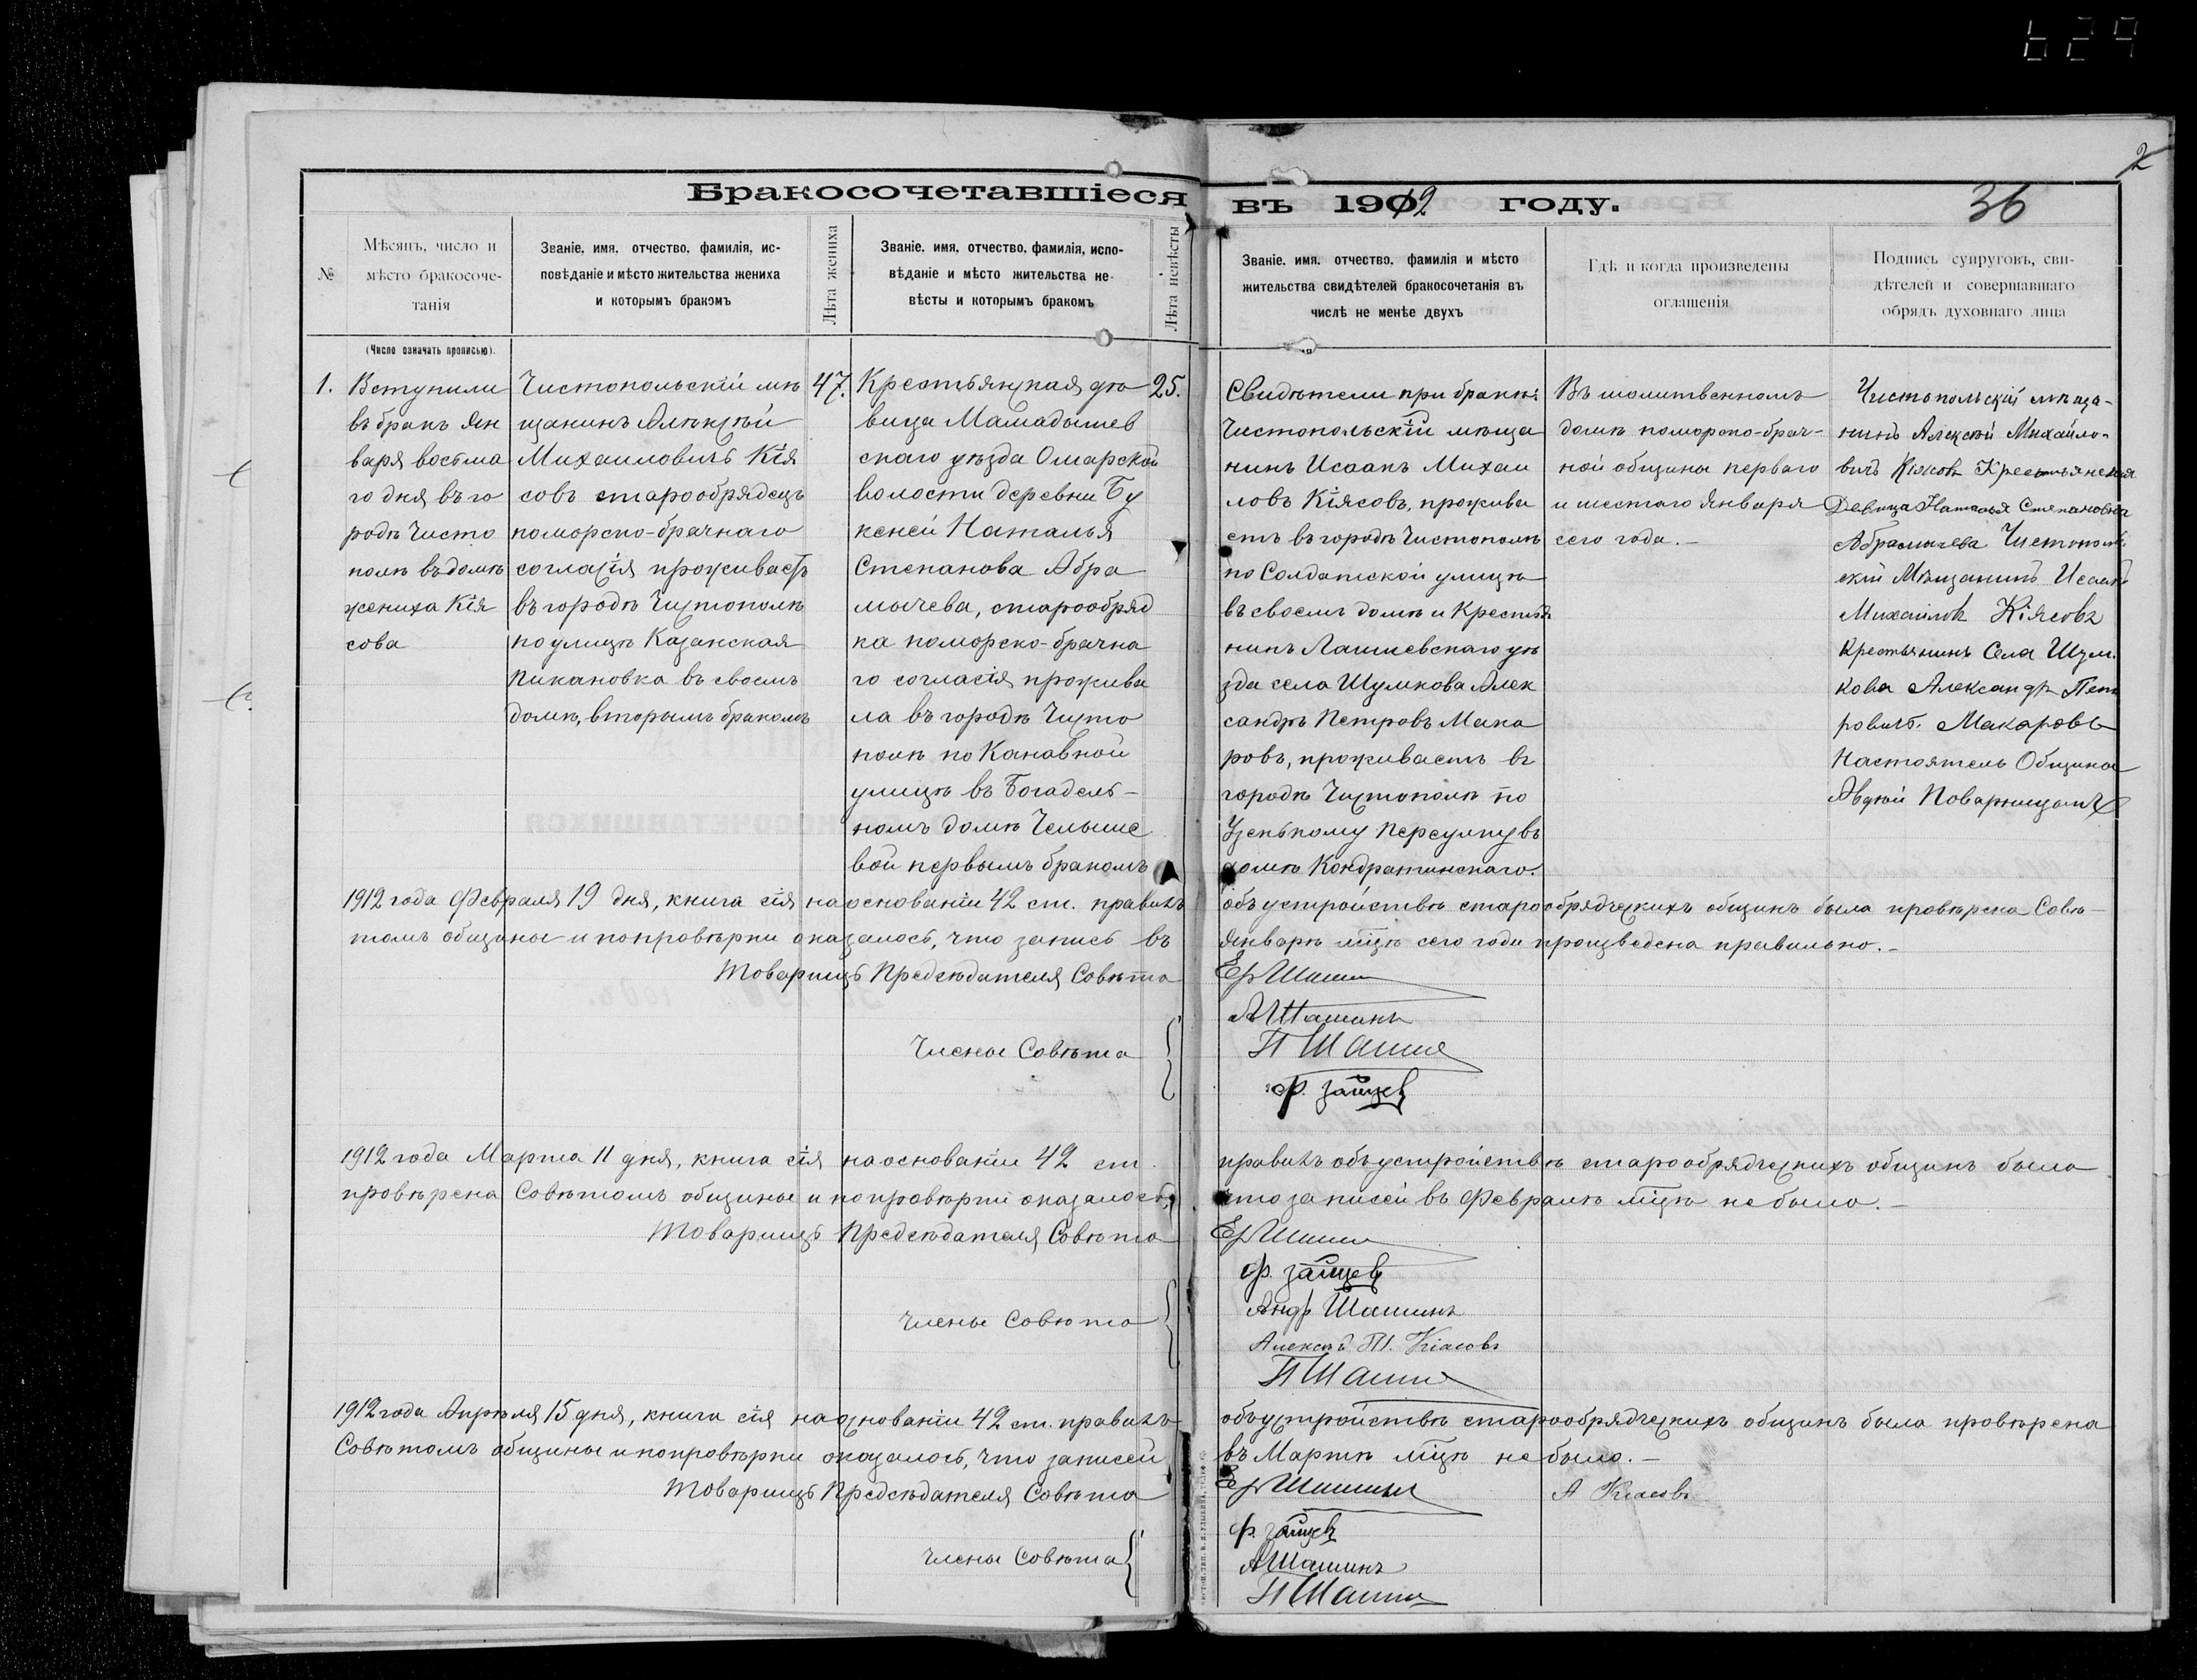 2
36
Бракосочетавшіеся въ 1912 году.
№
Мѣсяцъ, число и
мѣсто бракосоче-
танія
Званіе, имя, отчество, фамилія, ис-
повѣданіе и мѣсто жительства жениха
и которымъ бракомъ
Лѣта жениха
Званіе, имя, отчество, фамилія, испо-
вѣданіе и мѣсто жительства не-
вѣсты и которымъ бракомъ
Лѣта невѣсты
Званіе, имя, отчество, фамилія и мѣсто
жительства свидѣтелей бракосочетанія въ
числѣ не менѣе двухъ
Гдѣ и когда произведены
оглашенія
Подпись супруговъ, сви-
дѣтелей и совершавшаго
обрядъ духовнаго лица
(Число означать прописью).
1.
Вступили
въ бракъ Ян
варя восьма
го дня въ го
родѣ Чисто
полѣ въ домѣ
жениха Кія
сова
Чистопольскій мѣ
щанинъ Алексѣй
Михаиловичъ Кія
совъ старообрядецъ
поморско-брачнаго
согласія проживаетъ
въ городѣ Чистополѣ
по улицѣ Казанская
Пикановка въ своемъ
домѣ, вторымъ бракомъ
47.
Крестьянская дѣ
вица Мамадышев
скаго уѣзда Омарской
волости деревни Бу
кеней Наталья
Степанова Абра
мычева, старообряд
ка поморско-брачна
го согласія прожива
ла въ городѣ Чисто
полѣ по Канавной
улицѣ въ Богадель-
номъ домѣ Челыше
вой первымъ бракомъ
25.
Свидѣтели при бракѣ:
Чистопольскій мѣща
нинъ Исаакъ Михаи
ловъ Кіясовъ, прожива
етъ въ городѣ Чистополѣ
по Солдатской улицѣ
въ своемъ домѣ и Крестья
нинъ Лаишевскаго уѣ
зда села Шумкова Алек
сандръ Петровъ Мака
ровъ, проживаетъ въ
городѣ Чистополѣ по
Узенькому переулку въ
домѣ Кондратинскаго.
Въ молитвенномъ
домѣ поморско-брач-
ной общины перваго
и шестаго Января
сего года.-
Чистопольскій мѣща-
нинъ Алексѣй Михайло-
вичъ Кіясовъ Крестьянская
Девица Наталья Степановна
Абрамычева Чистополь-
скій Мѣщанинъ Исаакъ
Михаиловъ Кіясовъ
Крестьянинъ Села Шум-
кова Александръ Пет
ровичъ. Макаровъ
Настоятель Общины
Авдѣй Поварницынъ
1912 года Февраля 19 дня, книга сія на основаніи 42 ст. правилъ объ устройствѣ старообрядческихъ общинъ была провѣрена Совѣ-
томъ общины и по провѣрки оказалось, что запись въ Январѣ м̃цѣ сего года произведена правильно.-
Товарищъ Предсѣдателя Совѣта Ер Шашин
Члены Совѣта
А Шашинъ
П Шашин
Ф. Зайцев
1912 года Марта 11 дня, книга сія на основаніи 42 ст. правилъ объ устройствѣ старообрядческихъ общинъ была
провѣрена Совѣтомъ общины и по провѣрки оказалось, что записей въ Февралѣ м̃цѣ не было.-
Товарищъ Предсѣдателя Совѣта Ер Шашин
Члены Совѣта
Ф. Зайцев
Андр Шашинъ
Алексѣй М. Кіасовъ
П Шашин
1912 года Апрѣля 15 дня, книга сія на основаніи 42 ст. правилъ объ устройствѣ старообрядческихъ общинъ была провѣрена
Совѣтомъ общины и по провѣрки оказалось, что записей въ Мартѣ м̃цѣ не было.-
Товарищъ Предсѣдателя Совѣта Ер Шашин
А Кіасовъ
Члены Совѣта
Ф. Зайцев
А Шашинъ
П Шашин